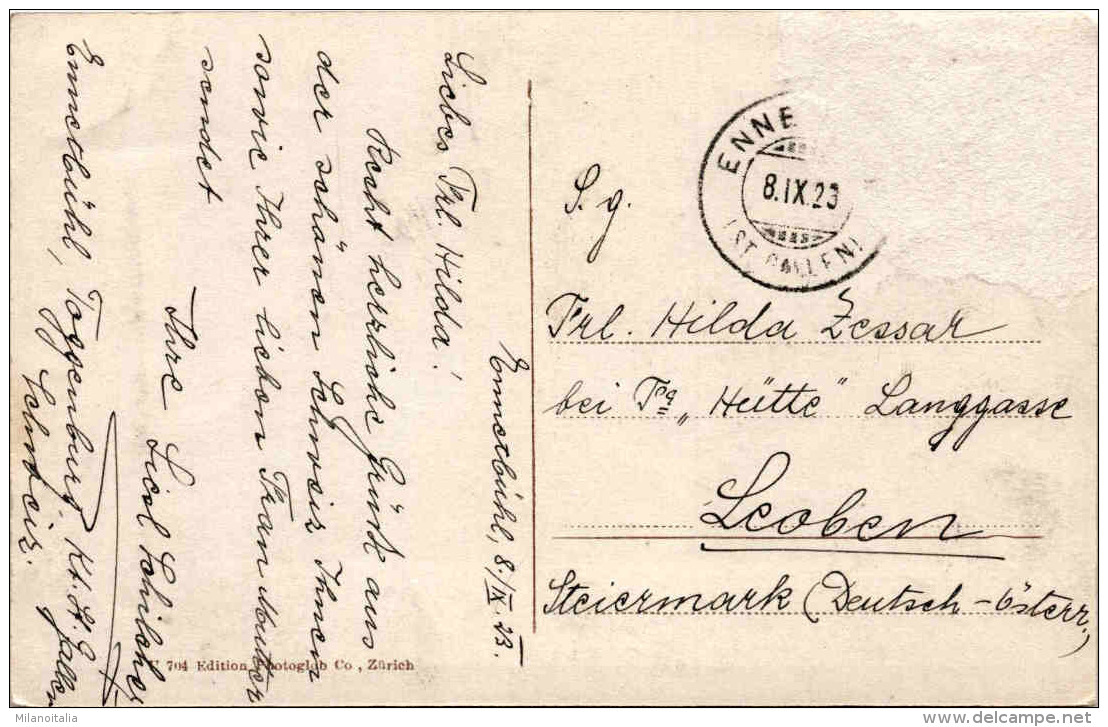 Ennetbühl, 8./IX. 23.
Liebes Frl. Hilda!
Recht herzliche Grüße aus
der schönen Schweiz Ihnen
sowie Ihrer lieben Frau Mutter
sendet
Ihre Liesl
Ennetbühl, Toggenburg. Kt. St. Gallen
Schweiz.
ENNE
8.IX.23
(ST. GALLEN)
S. g.
Frl. Hilda Zessar
bei Fa „Hütte" Langgasse
Leoben
Steiermark (Deutsch-Österr.)
704 Edition Photoglob Co., Zürich
Milanoitalia
www.delcampe.net